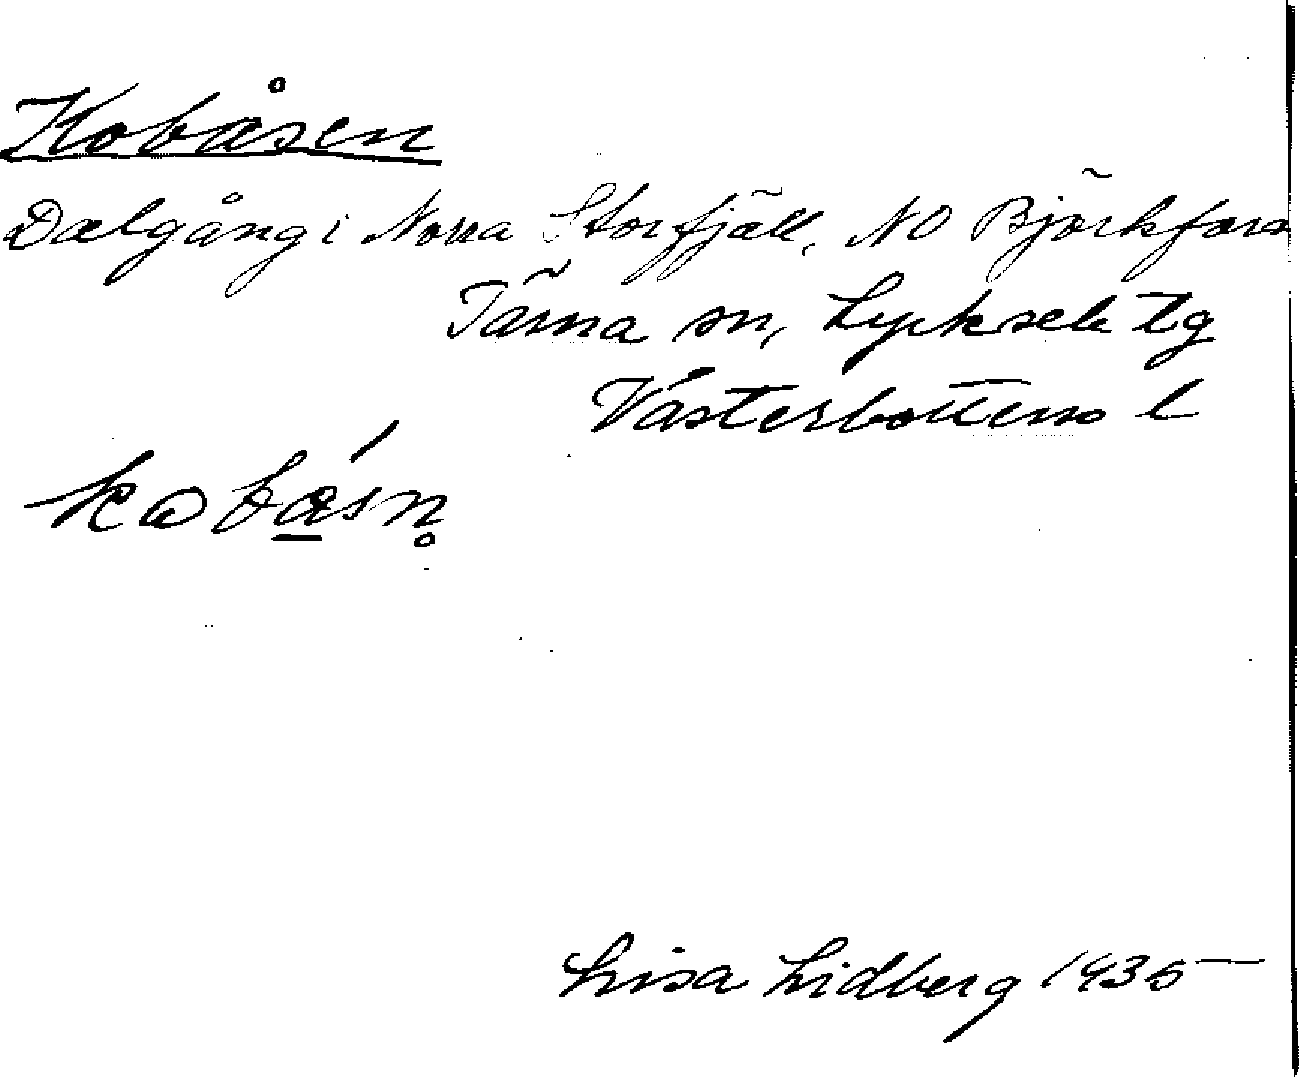 Kobåsen
Dalgång i Norra Storfjäll, NO Björkfors
Tärna sn, Lycksele tg
Västerbottens l
Lisa Lidberg 1935